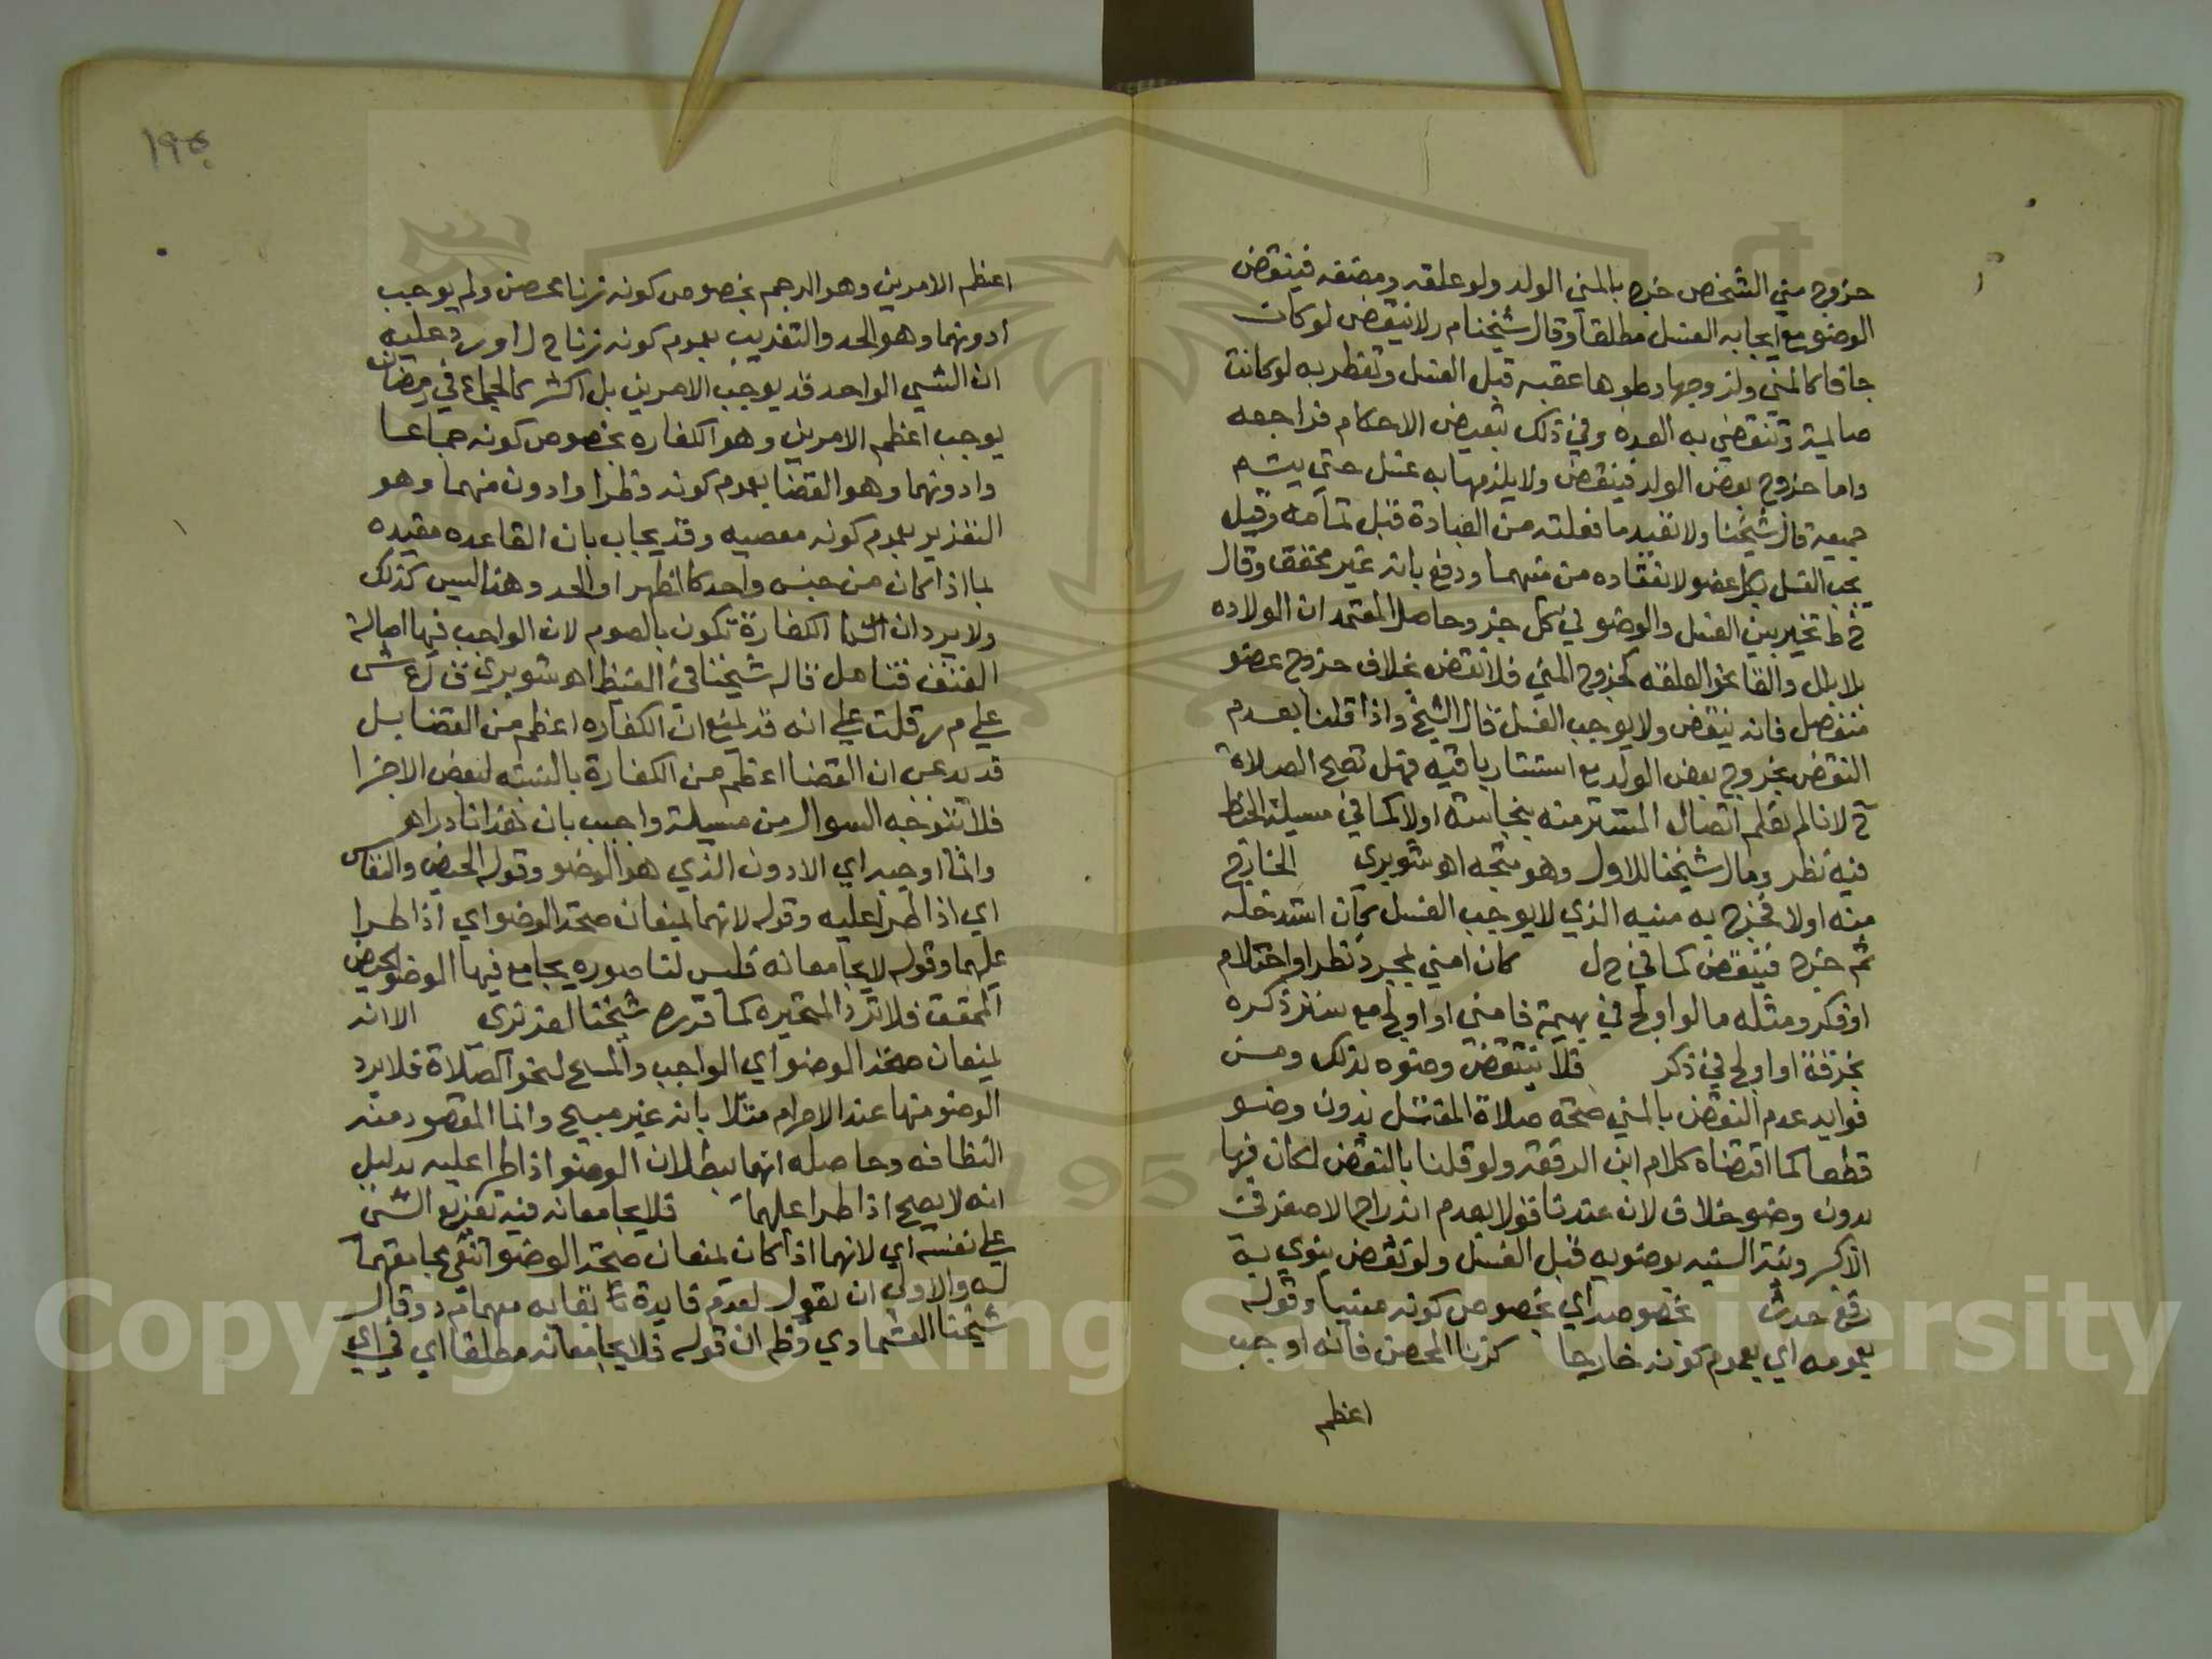 خروج مني الشخص خرج بالمني الولد ولو علقه ومضغه فينقض
الوضو مع ايجابه الغسل مطلقا وقال شيخنا م ر لا ينقض لو كان
جافا كالمني ولزوجها وطوها عقبه قبل الغسل وتفطر به لو كانت
صايمة وتنقضي به العده وفي ذلك تبعيض الاحكام فراجعه
واما خروج بعض الولد فينقض ولا يلزمها به غسل حتي يتم
جميعه قال شيخنا ولا تعيد ما فعلته من العبادة قبل تمامه وقيل
يجب الغسل بكل عضو لانعقاده من منيهما ودفع بانه غير محقق وقال
خ ط تخير بين الغسل والوضو في كل جز وحاصل المعتمد ان الولاده
بلا بلل والقا نحو العلقه كخروج المني فلا تنقض بخلاف خروج عضو
منفصل فانه ينقض ولا يوجب الغسل قال الشيخ واذا قلنا بعدم
النقض بخروج بعض الولد مع استتار باقيه فهل تصح الصلاة
ح لانا لم نعلم اتصال المستتر منه بنجاسته اولا كما في مسيلة الخيط
فيه نظر ومال شيخنا للاول وهو متجه اهـ شوبري الخارج
منه اولا فخرج به منيه الذي لا يوجب الغسل بان استدخله
ثم خرج فينقض كما في ح ل كان امني بمجرد نظر او احتلام
او فكر ومثله ما لو اولج في بهيمة فامني او اولج مع ستر ذكره
بخرقة او اولج في ذكر فلا ينتقض وضوه بذلك ومن
فوايد عدم النقض بالمني صحة صلاة المغتسل بدون وضو
قطعا كما اقتضاه كلام ابن الرفعة ولو قلنا بالنقض لكان فيها
بدون وضو خلاف لان عندنا قولا بعدم اندراج الاصغر في
الاكبر ونية السنيه بوضويه قبل الغسل ولو نقض ينوي به
رفع حدث بخصوصه اي بخصوص كونه منيا وقوله
بعمومه اي بعموم كونه خارجا كزنا المحصن فانه اوجب
اعظم
١٩٥
اعظم الامرين وهو الرجم بخصوص كونه زنا محصن ولم يوجب
ادونهما وهو الحد والتغريب بعموم كونه زنا ح ل اورد عليه
ان الشي الواحد قد يوجب الامرين بل اكثر كالجماع في رمضان
يوجب اعظم الامرين وهو الكفاره بخصوص كونه جماعا
وادونهما وهو القضا بعموم كونه فطرا وادون منهما وهو
التعزير بعموم كونه معصيه وقد يجاب بان القاعده مقيده
بما اذا كان من جنس واحد كالطهر او الحد وهذا ليس كذلك
ولا يرد ان الكفارة تكون بالصوم لان الواجب فيها اصالة
العتق فتامل قاله شيخنا في الفيظ اهـ شوبري ق ل ع ش
علي م ر قلت علي انه قد يمنع ان الكفاره اعظم من القضا بل
قد يدعي ان القضا اعظم من الكفارة بالنسبه لبعض الافراد
فلا يتوجه السوال من مسيلة واجيب بان هذا نادر اهـ
وانما اوجبه اي الادون الذي هو الوضو وقوله الحيض والنفاس
اي اذا طرا عليه وقوله لانهما يمنعان صحة الوضو اي اذا طرا
عليهما وقوله لا يجامعانه فليس لنا صوره يجامع فيها الوضو الحيض
المحقق فلا ترد المتحيره كما قرره شيخنا العزيزي الا انه
يمنعان صحة الوضو اي الواجب والمبيح لنحو الصلاة فلا يرد
الوضو منها عند الاحرام مثلا بانه غير مبيح وانما المقصود منه
النظافه وحاصله انهما يبطلان الوضو اذا طرا عليه بدليل
انه لا يصح اذا طرا عليهما فلا يجامعانه فيه تفريع الشي
علي نفسه اي لانهما اذا كان يمنعان صحة الوضو انتفي مجامعتهما
له والاولي ان يقول لعدم فايدة بقايه معهما م د وقال
شيخنا العشماوي وظم ان قوله فلا يجامعانه مطلقا اي في اي